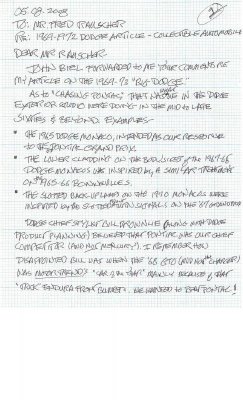 05.08.2008
TO: MR. FRED RAUSCHER
RE: 1969-1972 DODGE ARTICLE - COLLECTIBLE AUTOMOBILE
DEAR MR RAUSCHER
JOHN BIEL FORWARDED TO ME YOUR COMMENTS RE
MY ARTICLE ON THE 1969-72 "BIG DODGE".
AS TO "CHASING TOYOTAS" THAT IS WHAT WE IN THE DODGE
EXTERIOR STUDIO WERE DOING IN THE MID TO LATE
SIXTIES & BEYOND. EXAMPLES-
• THE 1965 DODGE MONACO, INTENDED AS OUR RESPONSE
TO THE PONTIAC GRAND PRIX.
• THE LOWER CLADDING ON THE BODYSIDES OF THE 1967-68
DODGE MONACOS WAS INSPIRED BY A SIMILAR TREATMENT
ON 1965-66 BONNEVILLES.
• THE SLOTTED BACK-UP LAMPS ON THE 1970 MONACOS WERE
INSPIRED BY THE SLOTTED TAILLIGHTS ON THE '67 GRAND PRIX
DODGE CHIEF STYLIST BILL BROWNLIE (ALONG WITH DODGE
PRODUCT PLANNING) BELIEVED THAT PONTIAC WAS OUR CHIEF
COMPETITOR (AND NOT MERCURY). I REMEMBER HOW
DISAPPOINTED BILL WAS WHEN THE '68 GTO (AND NOT THE CHARGER)
WAS MOTOR TREND'S "CAR OF THE YEAR" MAINLY BECAUSE OF THAT
"ENDURA FRONT BUMPER". WE WANTED TO BEAT PONTIAC!